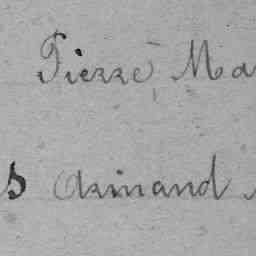 Pierre Ma
s Armand